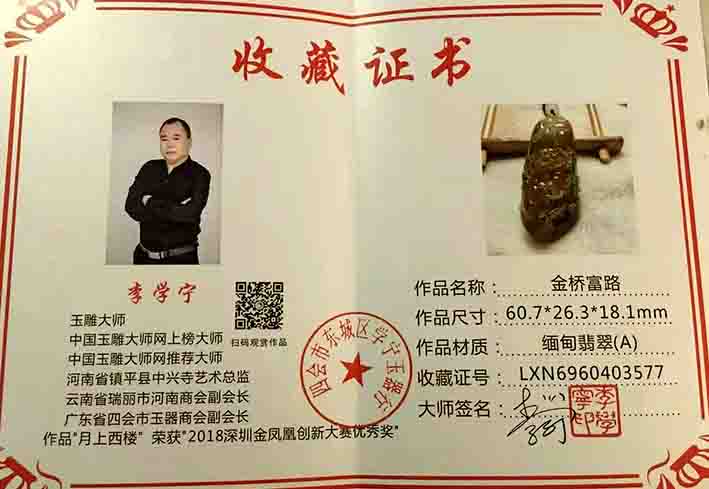 收藏证书
李学宁
扫码观赏作品
玉雕大师
中国玉雕大师网上榜大师
中国玉雕大师网推荐大师
河南省镇平县中兴寺艺术总监
云南省瑞丽市河南商会副会长
广东省四会市玉器商会副会长
作品"月上西楼" 荣获"2018深圳金凤凰创新大赛优秀奖"
四会市东城区学宁玉器行
作品名称： 金桥富路
作品尺寸： 60.7*26.3*18.1mm
作品材质： 缅甸翡翠(A)
收藏证号： LXN6960403577
大师签名：
李學寧印